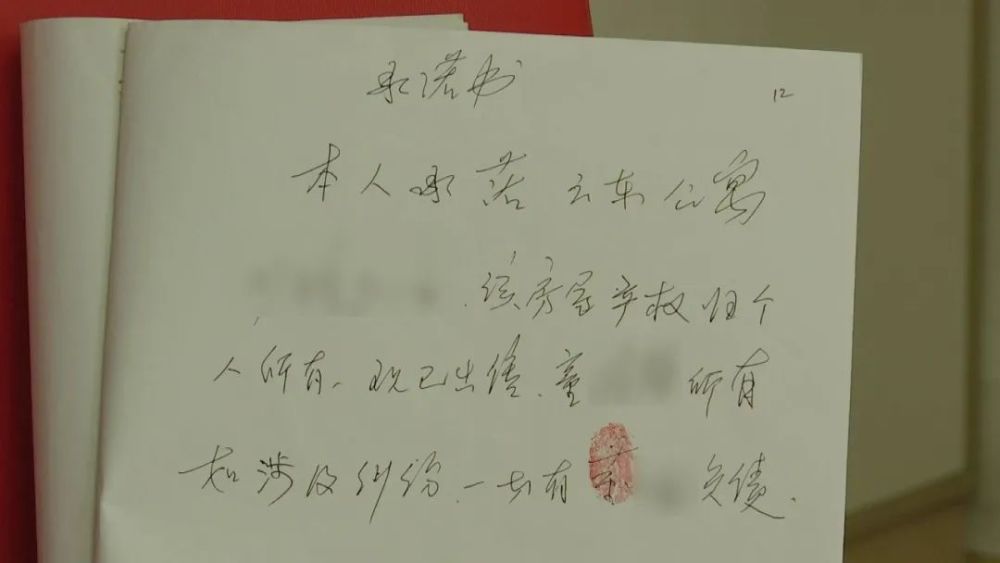 承诺书
12
本人承诺云车公寓
该房屋产权归个
人所有、现已出售、童 所有
如涉及纠纷、一切有 负债、